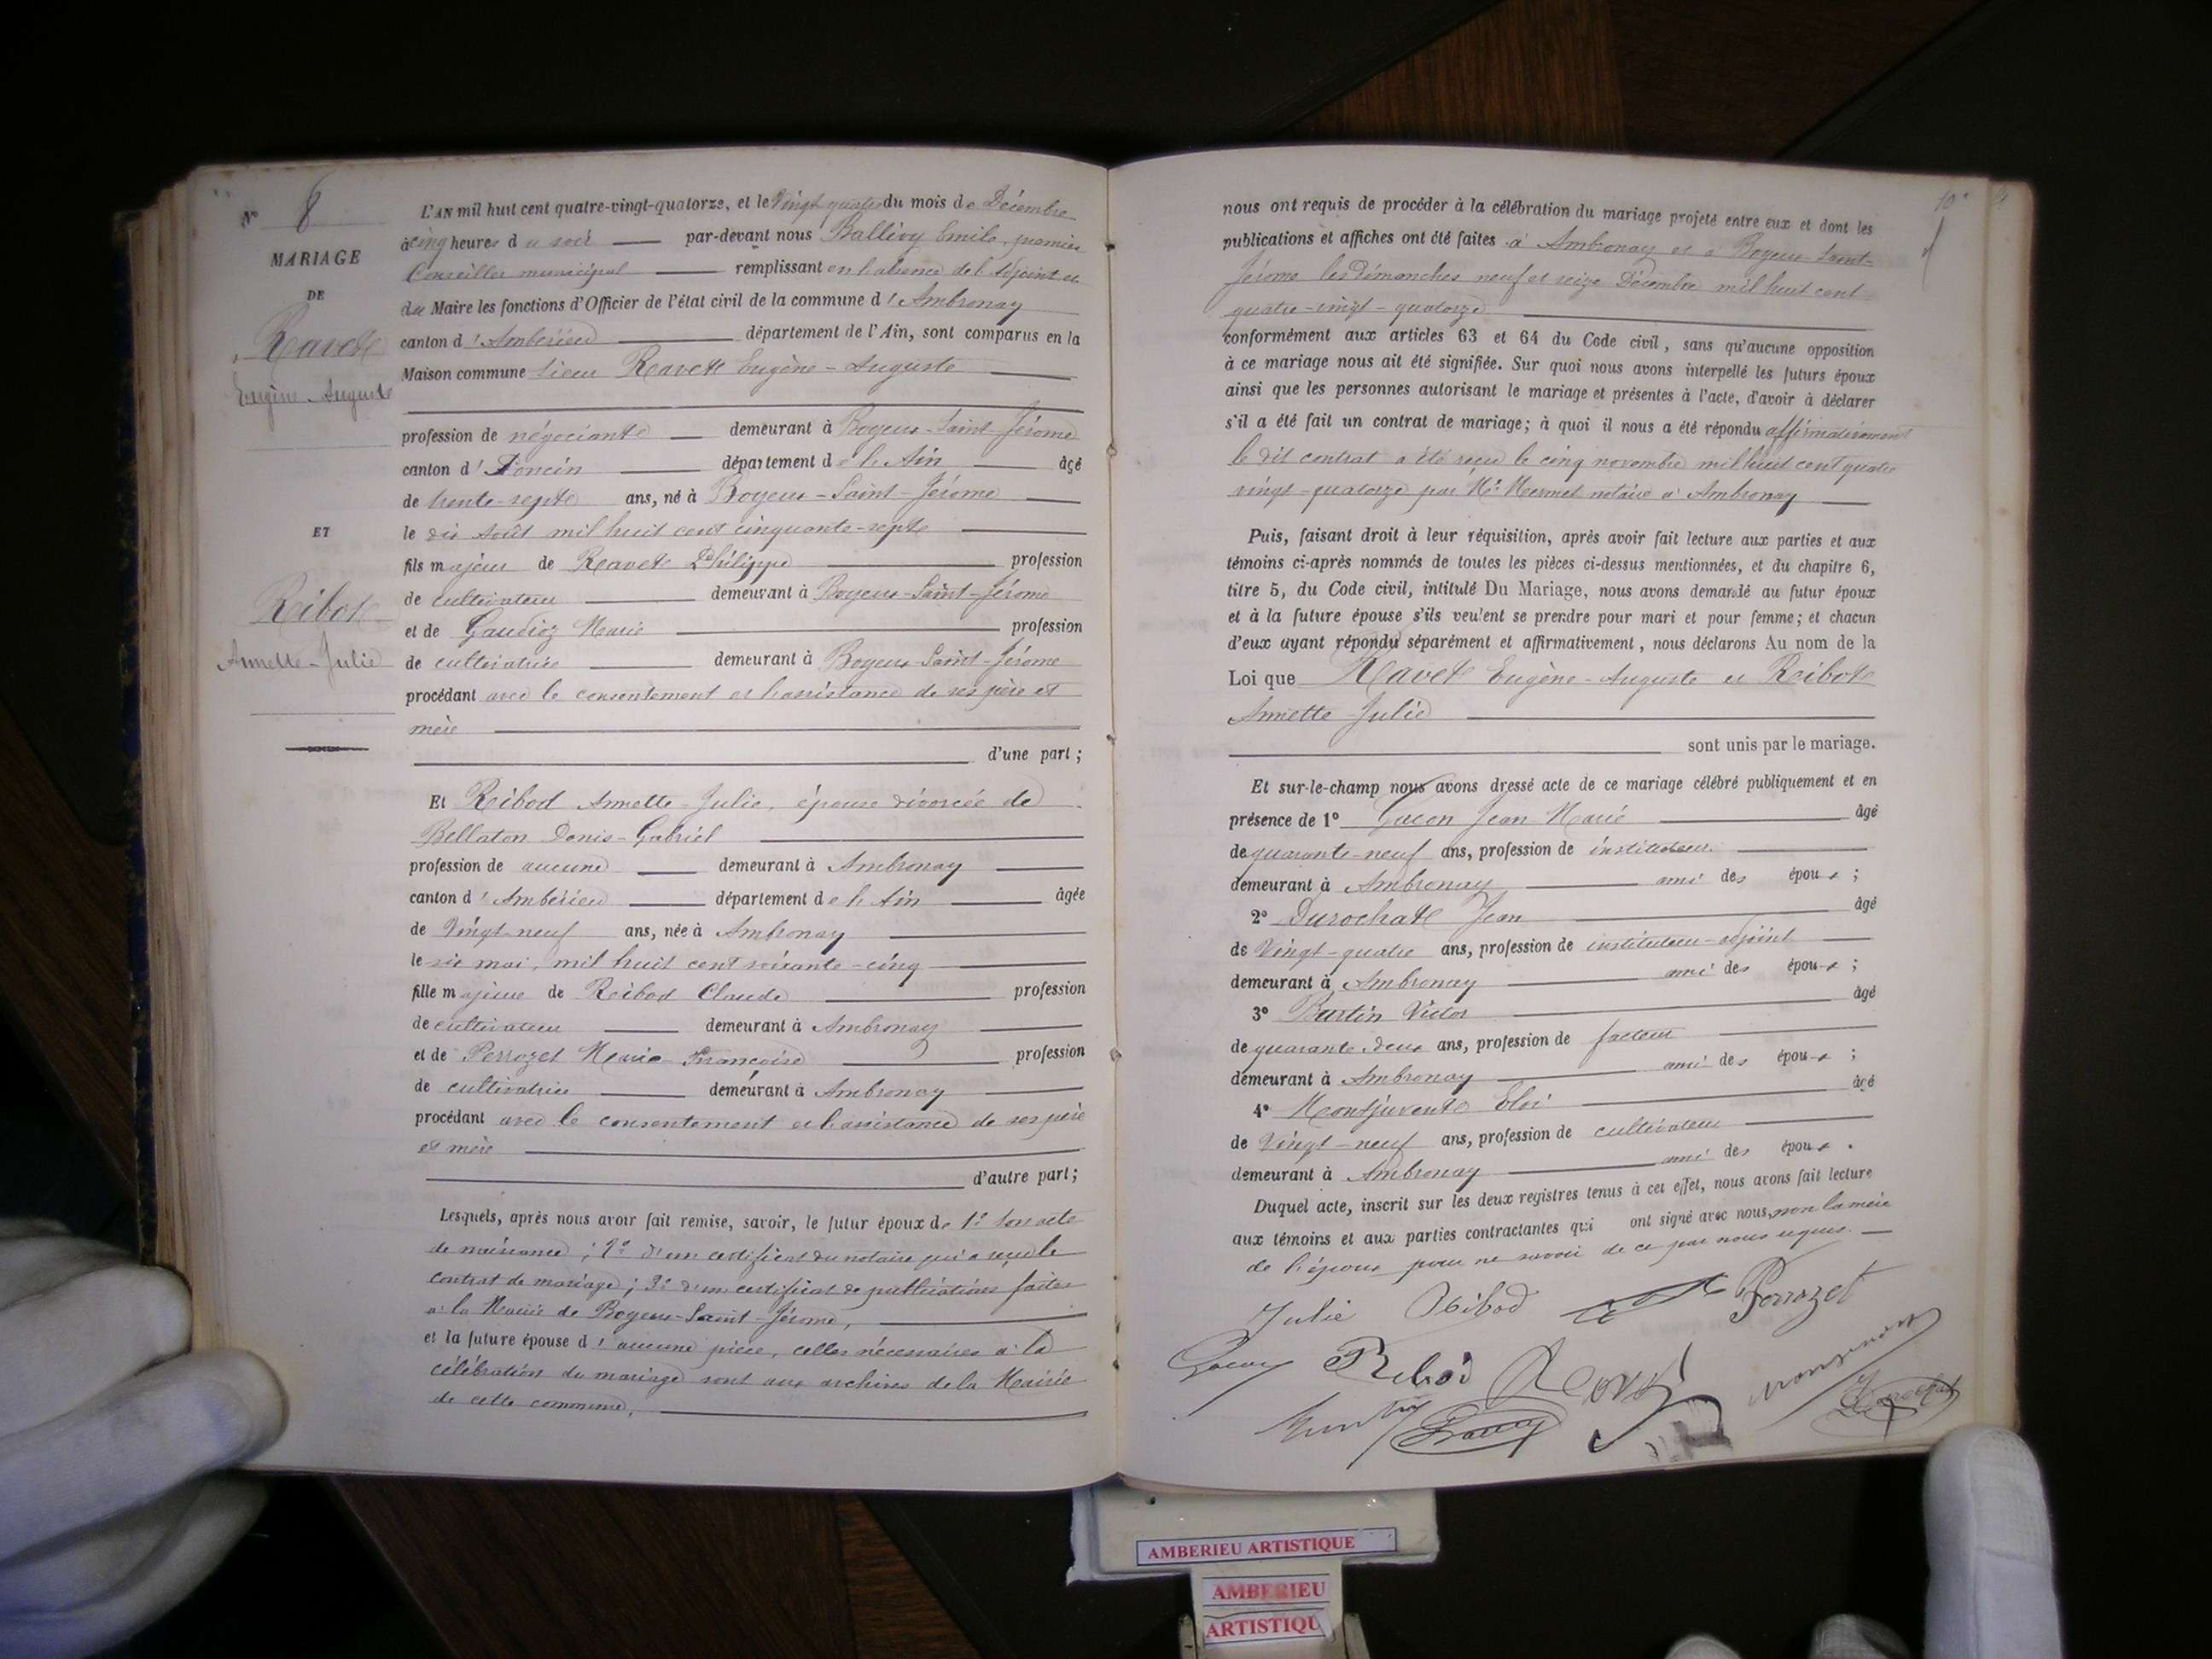 N° 8
MARIAGE
DE
Ravet
Eugène-Auguste
ET
Ribot
Annette-Julie
L'AN mil huit cent quatre-vingt-quatorze, et le Vingt quatre du mois de Décembre
à cinq heures du soir par-devant nous Ballivy Emile, premier
Conseiller municipal remplissant en l'absence de l'adjoint et
du Maire les fonctions d'Officier de l'état civil de la commune d'Ambronay
canton d'Ambérieu département de l'Ain, sont comparus en la
Maison commune Sieur Ravet Eugène-Auguste
profession de négociant demeurant à Boyeux-Saint-Jérome
canton d' Poncin département de l'Ain âgé
de trente-sept ans, né à Boyeux-Saint-Jérome
le dix Août mil huit cent cinquante-sept
fils majeur de Ravet Philippe profession
de cultivateur demeurant à Boyeux-Saint-Jérome
et de Gaudioz Marie profession
de cultivatrice demeurant à Boyeux-Saint-Jérome
procédant avec le consentement et l'assistance de ses père et
mère
d'une part;
Et Ribod Annette-Julie, épouse divorcée de
Bellaton Denis-Gabriel
profession de aucune demeurant à Ambronay
canton d'Ambérieu département de l'Ain âgée
de Vingt-neuf ans, née à Ambronay
le six mai, mil huit cent soixante-cinq
fille majeure de Ribod Claude profession
de cultivateur demeurant à Ambronay
et de Perrozet Marie Françoise profession
de cultivatrice demeurant à Ambronay
procédant avec le consentement et l'assistance de ses père
et mère
d'autre part;
Lesquels, après nous avoir fait remise, savoir, le futur époux de 1° son acte
de naissance; 2° d'un certificat du notaire qui a reçu le
contrat de mariage; 3° d'un certificat de publications faites
à la Mairie de Boyeux-Saint-Jérome,
et la future épouse d'aucune pièce, celles nécessaires à la
célébration du mariage sont aux archives de la Mairie
de cette commune.
10
nous ont requis de procéder à la célébration du mariage projeté entre eux et dont les
publications et affiches ont été faites à Ambronay et à Boyeux-Saint-
Jérome les Dimanches neuf et seize Décembre mil huit cent
quatre-vingt-quatorze
conformément aux articles 63 et 64 du Code civil, sans qu'aucune opposition
à ce mariage nous ait été signifiée. Sur quoi nous avons interpellé les futurs époux
ainsi que les personnes autorisant le mariage et présentes à l'acte, d'avoir à déclarer
s'il a été fait un contrat de mariage; à quoi il nous a été répondu affirmativement
le dit contrat a été reçu le cinq novembre mil huit cent quatre
vingt-quatorze par Me Mermet notaire à Ambronay
Puis, faisant droit à leur réquisition, après avoir fait lecture aux parties et aux
témoins ci-après nommés de toutes les pièces ci-dessus mentionnées, et du chapitre 6,
titre 5, du Code civil, intitulé Du Mariage, nous avons demandé au futur époux
et à la future épouse s'ils veulent se prendre pour mari et pour femme; et chacun
d'eux ayant répondu séparément et affirmativement, nous déclarons Au nom de la
Loi que Ravet Eugène-Auguste et Ribot
Annette-Julie
sont unis par le mariage.
Et sur-le-champ nous avons dressé acte de ce mariage célébré publiquement et en
présence de 1° Gacon Jean Marie âgé
de quarante-neuf ans, profession de instituteur
demeurant à Ambronay ami des époux;
2° Durochat Jean âgé
de Vingt-quatre ans, profession de instituteur-adjoint
demeurant à Ambronay ami des époux;
3° Burtin Victor âgé
de quarante deux ans, profession de facteur
demeurant à Ambronay ami des époux;
4° Montjuvent Eloi âgé
de Vingt-neuf ans, profession de cultivateur
demeurant à Ambronay ami des époux.
Duquel acte, inscrit sur les deux registres tenus à cet effet, nous avons fait lecture
aux témoins et aux parties contractantes qui ont signé avec nous, non la mère
de l'époux pour ne savoir de ce par nous requis.
Julie Ribod Perrozet
Gacon Ribod Ravet
Burtin Durochat
AMBERIEU ARTISTIQUE
AMBERIEU
ARTISTIQU